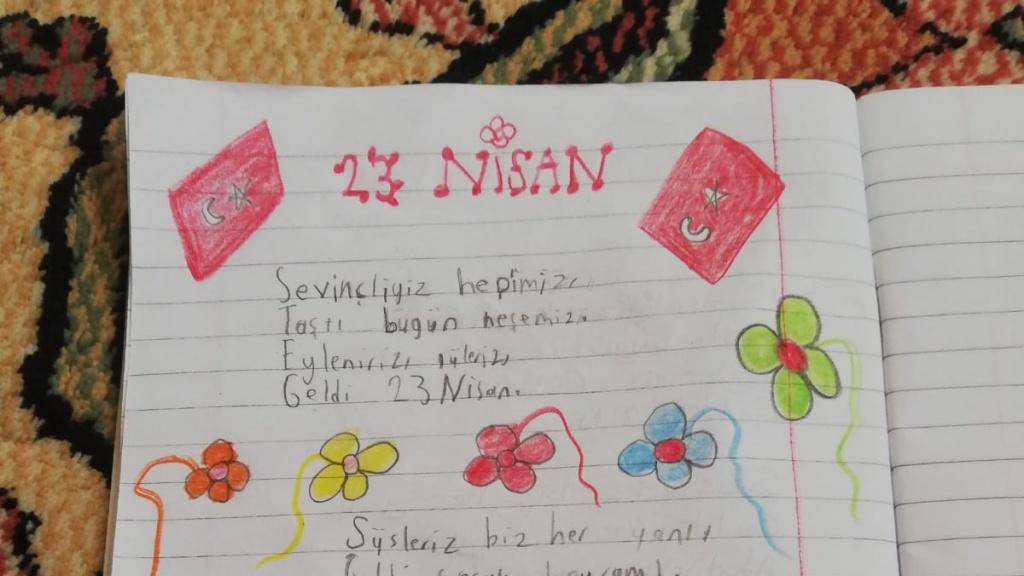 23 NİSAN
Sevinçliyiz hepimiz,
Taştı bugün neşemiz.
Eyleniriz, güleriz,
Geldi 23 Nisan.
Süsleriz biz her yanı,